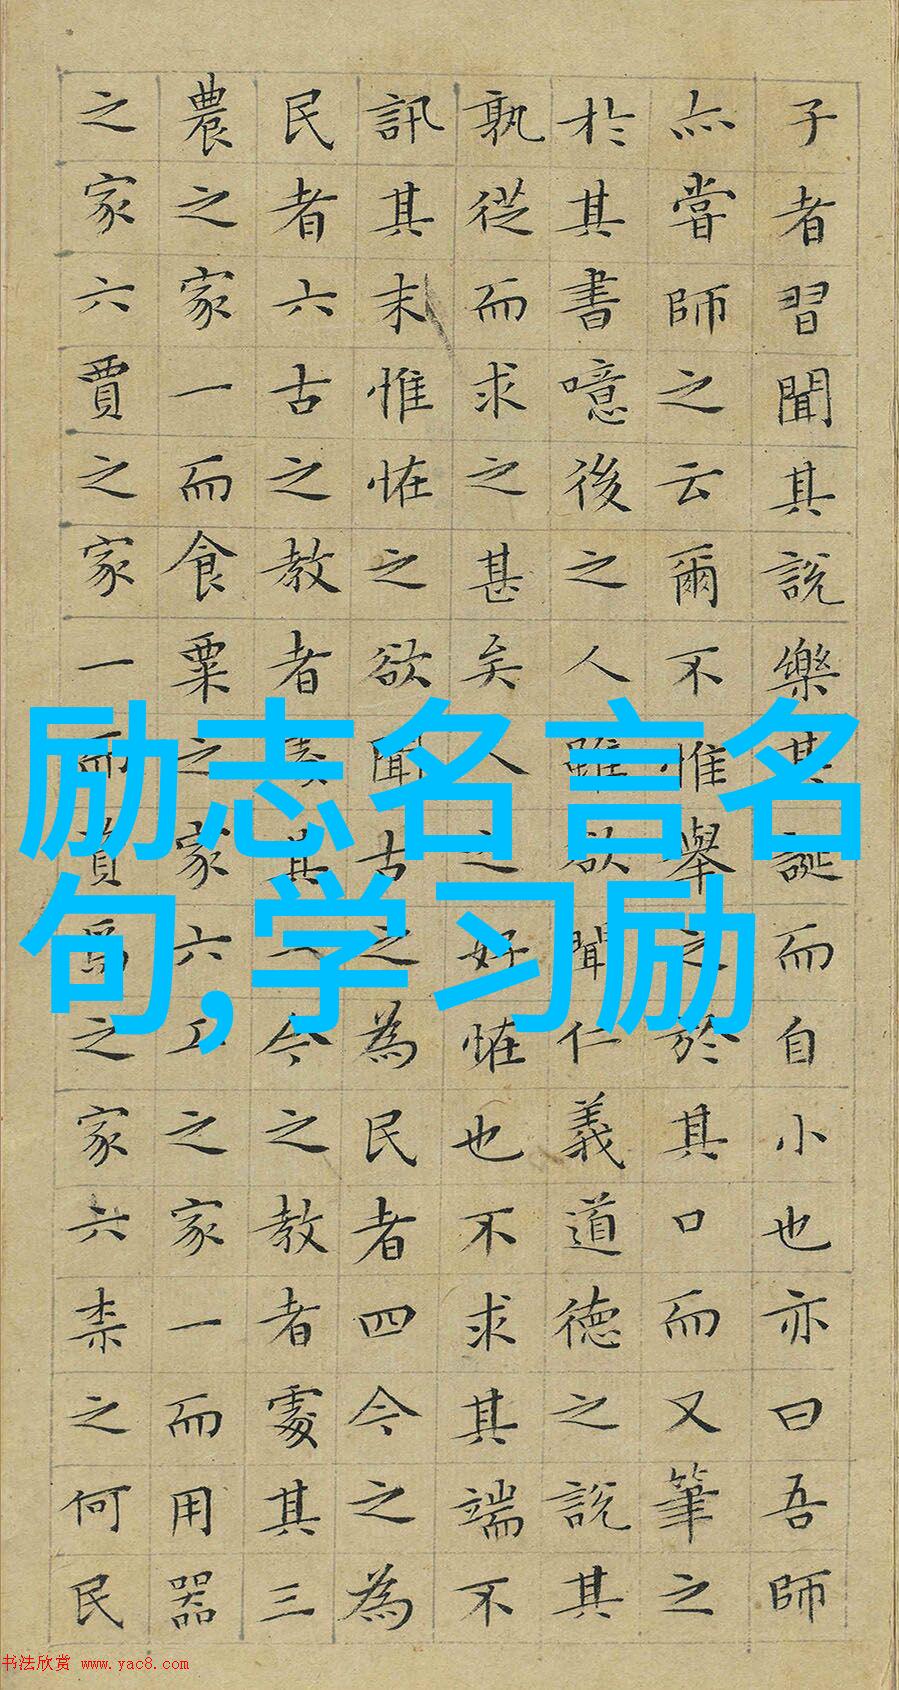 子者習聞其說樂其誕而自小也亦曰吾師
亦嘗師之云爾不惟舉之於其口而又筆之
於其書噫後之人雖欲聞仁義道德之說其
孰從而求之甚矣人之好恠也不求其端不
訊其末惟恠之欲聞古之為民者四今之為
民者六古之教者處其一今之教者處其三
農之家一而食粟之家六工之家一而用器
之家六賈之家一而資焉之家六柰之何民
励志名言名
句,学习励
书法欣赏 www.yac8.com